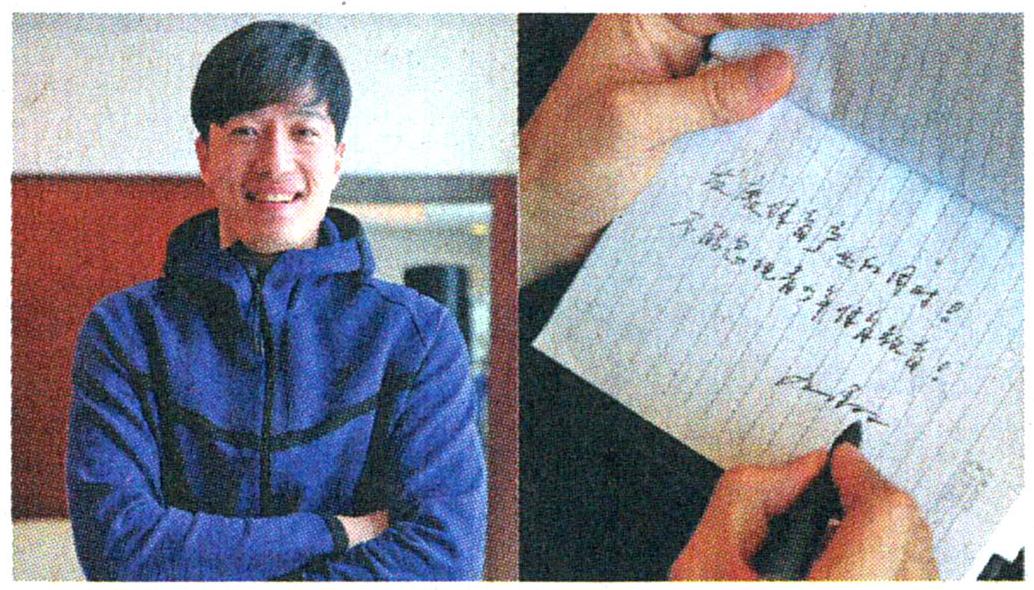 发展体育产业的同时！
不能忽视青少年体育教育！